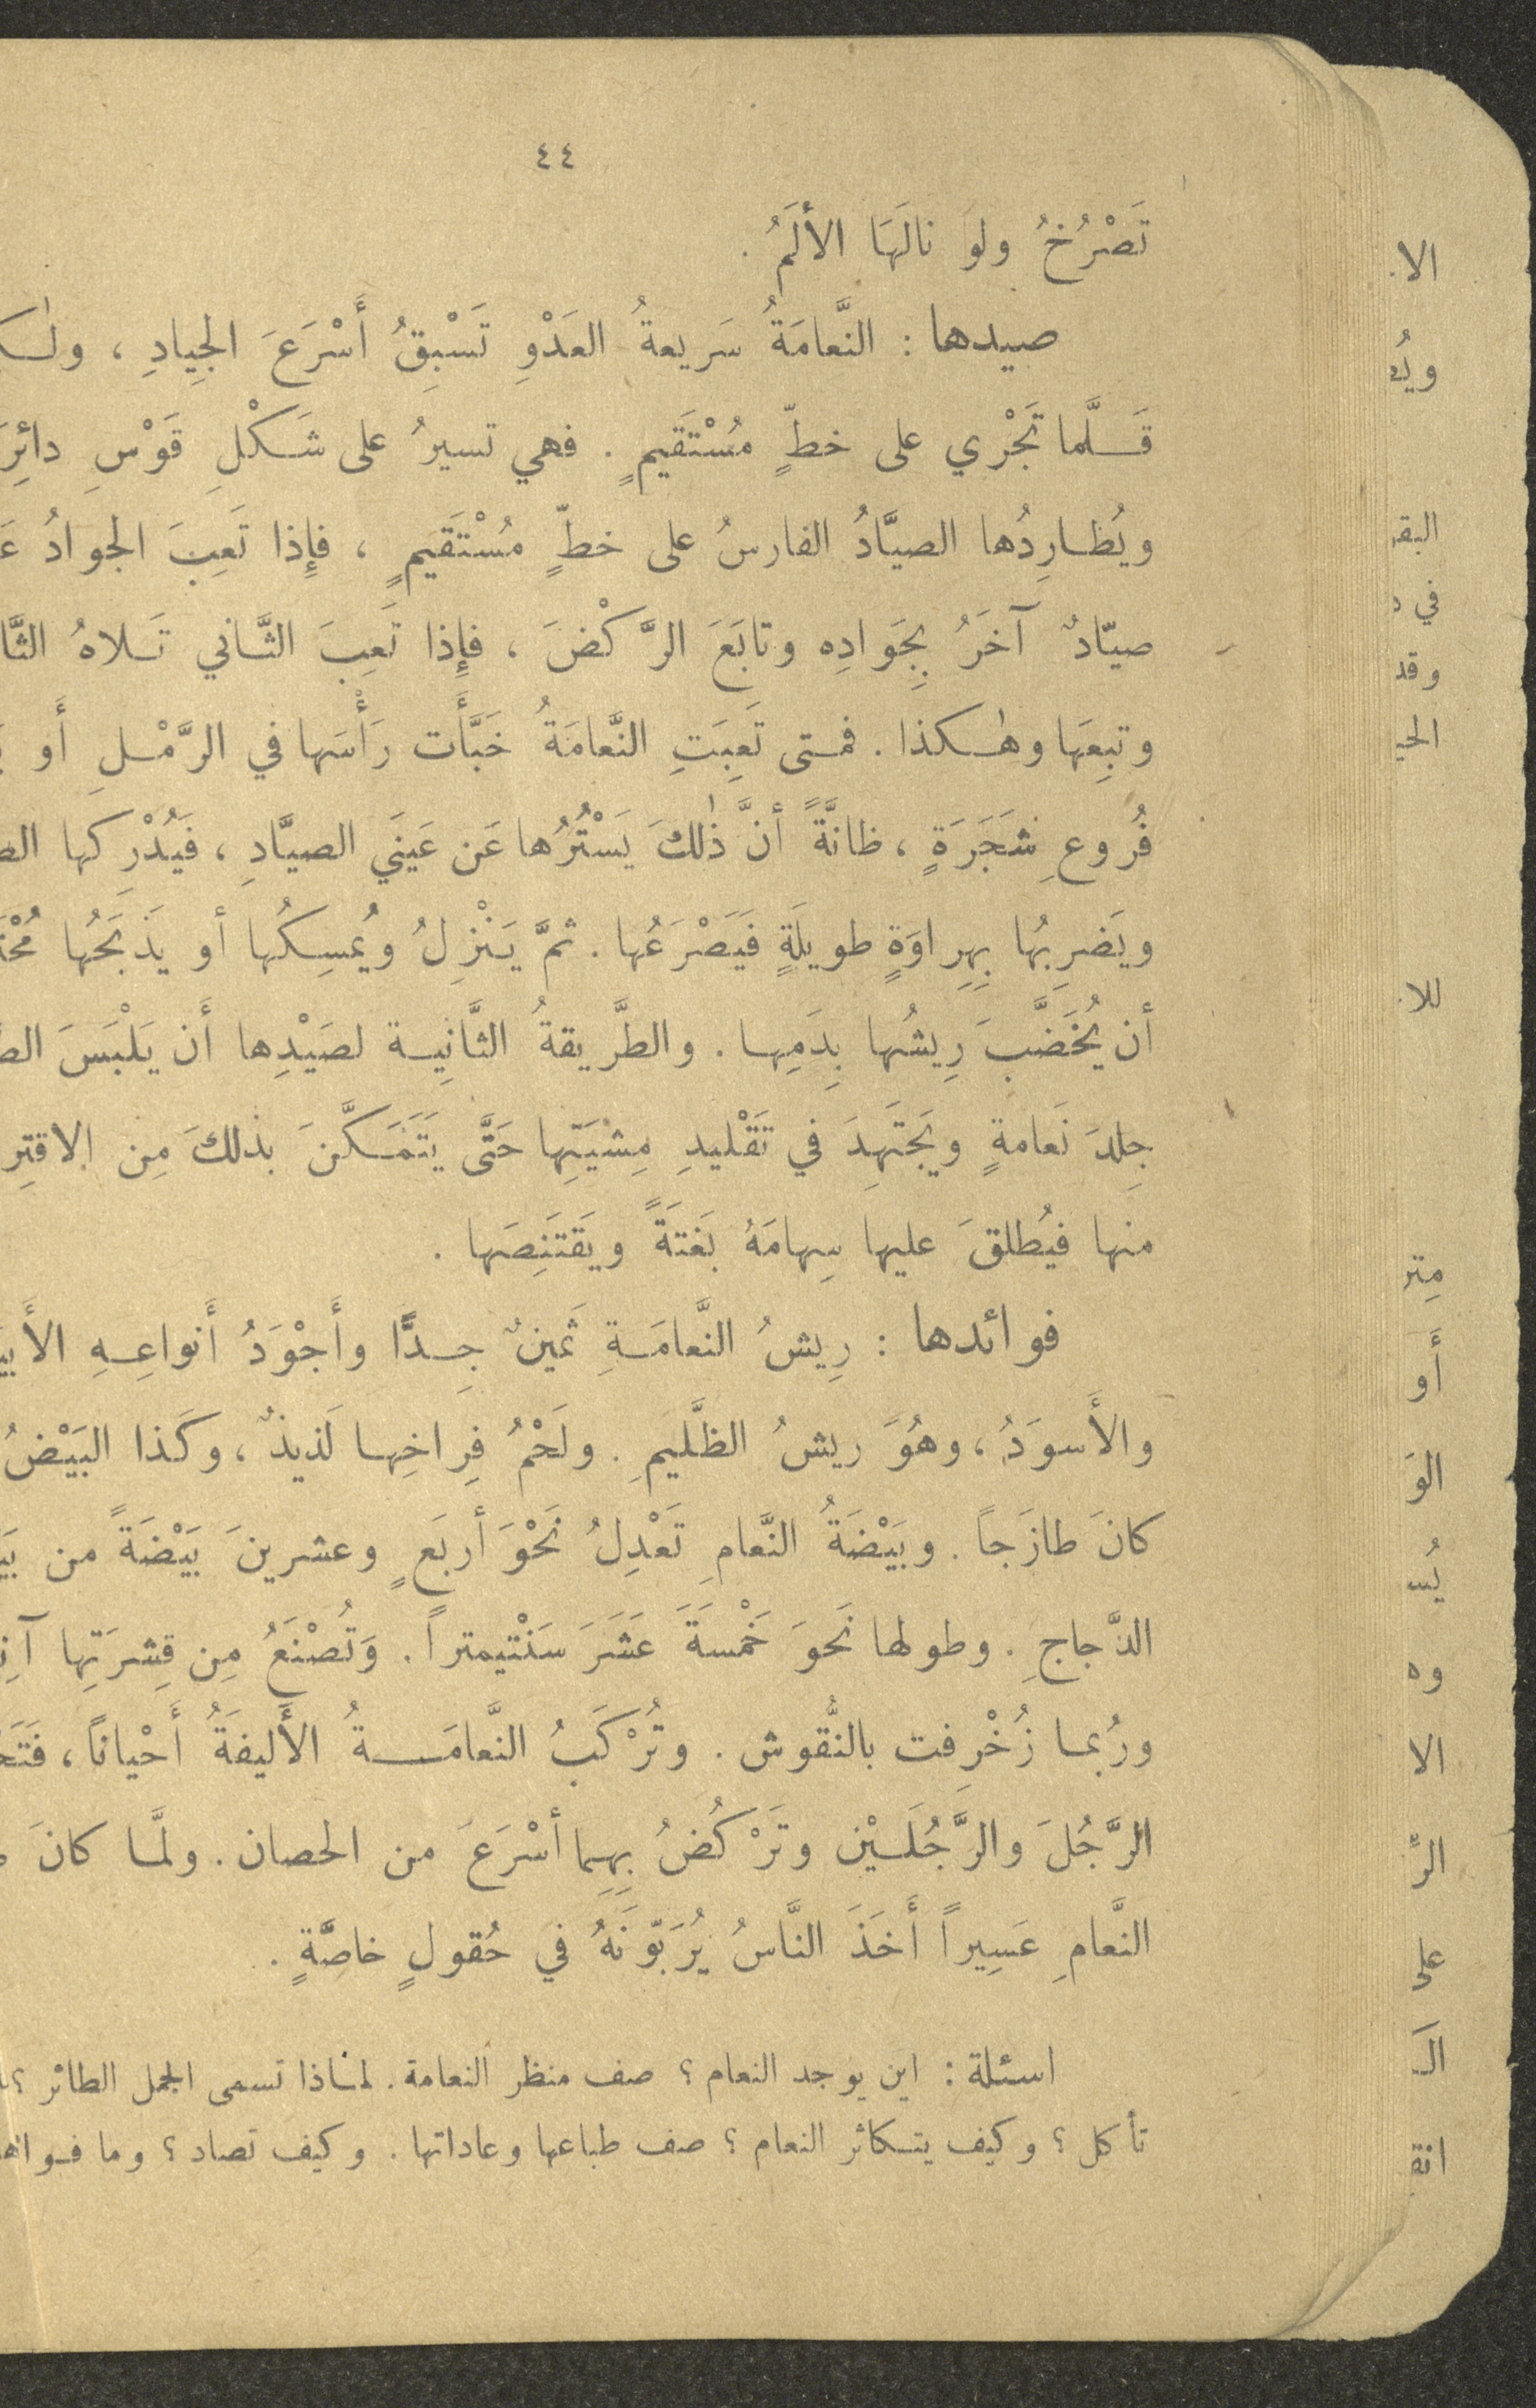 ٤٤
تَصْرُخُ ولو نالَهَا الأَلَمُ .
صيدها : النَّعامَةُ سَريعةُ العَدْوِ تَسْبِقُ أَسْرَعَ الجِيادِ ،
قَلَّما تَجْري على خطٍّ مُسْتَقيمٍ . فهي تسيرُ على شَكْلِ قَوْسِ
ويُطارِدُها الصيَّادُ الفارسُ على خطٍّ مُسْتَقيمٍ ، فإِذا تَعِبَ الجوادُ
صيّادٌ آخَرُ بِجَوادِه وتابَعَ الرَّكْضَ ، فإِذا تَعِبَ الثَّاني تَلاهُ
وتبِعَها وهٰكذا . فمتى تَعِبَتِ النَّعامَةُ خَبَّأَت رَأْسَها في الرَّمْلِ أَو
فُروعِ شَجَرَةٍ ، ظانَّةً أنَّ ذٰلكَ يَسْتُرُها عَن عَينَي الصيَّادِ ، فَيُدْرِكها
ويَضرِبُها بِهِراوَةٍ طويلَةٍ فَيَصْرَعُها . ثمَّ يَنْزِلُ ويُمسِكُها أو يَذبَحُها
أن يُخَضَّبَ رِيشُها بِدَمِها . والطَّريقةُ الثَّانِية لصَيْدِها أَن يَلْبَسَ
جِلدَ نَعامةٍ ويَجتَهِدَ في تَقْليدِ مِشيَتِها حَتَّى يَتَمَكَّنَ بذلكَ مِن
منها فيُطلقَ عليها سِهامَهُ بَغتَةً ويَقتَنِصَها .
فوائدها : رِيشُ النَّعامَةِ ثَمينٌ جِدًّا وأَجْوَدُ أَنواعِهِ
والأَسوَدُ ، وهُوَ ريشُ الظَّليمِ . ولَحْمُ فِراخِها لَذيذٌ ، وكَذا البَيْضُ
كانَ طازَجاً . وبَيْضَةُ النَّعامِ تَعْدِلُ نَحْوَ أربَعٍ وعشرينَ بَيْضَةً من
الدَّجاجِ . وطولها نَحوَ خَمْسَةَ عَشَرَ سَنْتيمتراً . وَتُصْنَعُ مِن قِشرَتِها
ورُبما زُخْرِفت بالنُّقوش . وتُرْكَبُ النَّعامَةُ الأَليفَةُ أَحْياناً ،
الرَّجُلَ والرَّجُلَيْن وتَرْكُضُ بِهِما أسْرَعَ من الحصان . ولمَّا كانَ
النَّعامِ عَسِيراً أَخَذَ النَّاسُ يُرَبّونَهُ في حُقولٍ خاصَّةٍ .
اسئلة : اين يوجد النعام ؟ صف منظر النعامة . لماذا تسمى الجمل الطائر ؟
تأكل ؟ وكيف يتكاثر النعام ؟ صف طباعها وعاداتها . وكيف تصاد ؟ وما
أَو
على